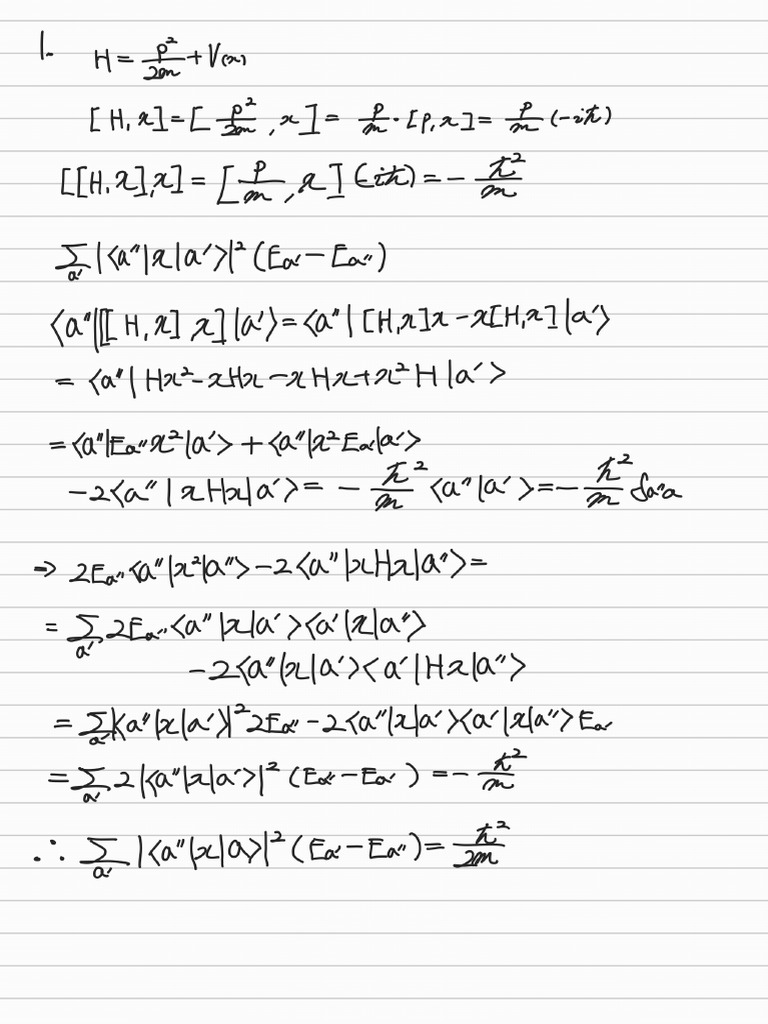 1. H = p²/2m + V(x)
[H, x] = [p²/2m, x] = p/m · [p, x] = p/m (-iħ)
[[H, x], x] = [p/m, x] (-iħ) = - ħ²/m
∑_a' |⟨a''|x|a'⟩|² (E_a' - E_a'')
⟨a''|[[H, x] x]|a'⟩ = ⟨a''| [H, x]x - x[H, x] |a'⟩
= ⟨a''| Hx² - xHx - xHx + x²H |a'⟩
= ⟨a''|E_a'' x²|a'⟩ + ⟨a''|x² E_a'|a'⟩
-2⟨a''| xHx|a'⟩ = - ħ²/m ⟨a''|a'⟩ = - ħ²/m δ_a''a
⇒ 2E_a''⟨a''|x²|a''⟩ - 2⟨a''|xHx|a''⟩ =
= ∑_a' 2E_a''⟨a''|x|a'⟩⟨a'|x|a''⟩
-2⟨a''|x|a'⟩⟨a'|Hx|a''⟩
= ∑_a' |⟨a''|x|a'⟩|² 2E_a'' - 2⟨a''|x|a'⟩⟨a'|x|a''⟩ E_a'
= ∑_a' 2|⟨a''|x|a'⟩|² (E_a'' - E_a') = - ħ²/m
∴ ∑_a' |⟨a''|x|a⟩|² (E_a' - E_a'') = ħ²/2m